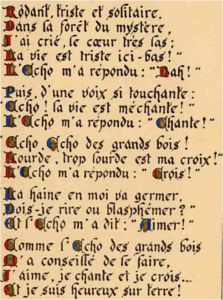 Rodant, triste et solitaire,
Dans la forêt du mystère,
J'ai crié, le cœur très las ;
La vie est triste ici-bas ! "
L'Echo m'a répondu : " Bah !"
Puis, d'une voix si touchante :
Echo ! la vie est méchante ! "
L'Echo m'a répondu : " Chante !"
Echo, Echo des grands bois !
Lourde, trop lourde est ma croix !"
L'Echo m'a répondu : " Crois !"
La haine en moi va germer,
Dois-je rire ou blasphémer ? "
Et l'Echo m'a dit : " Aimer !"
Comme l'Echo des grands bois
M'a conseillé de le faire,
J'aime, je chante et je crois...
Et je suis heureux sur terre !